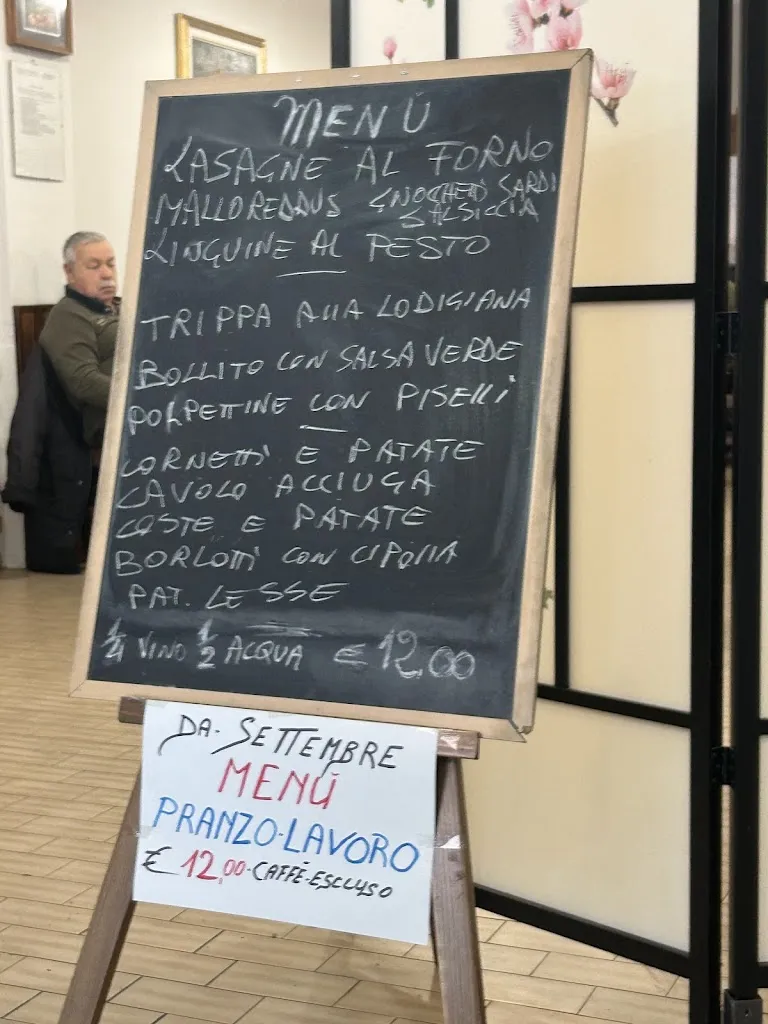 MENÙ
LASAGNE AL FORNO
MALLOREDDUS GNOCHETTI SARDI
SALSICCIA
LINGUINE AL PESTO
TRIPPA ALLA LODIGIANA
BOLLITO CON SALSA VERDE
POLPETTINE CON PISELLI
CORNETTI E PATATE
CAVOLO ACCIUGA
COSTE E PATATE
BORLOTTI CON CIPOLLA
PAT. LESSE
1/4 VINO 1/2 ACQUA € 12,00
DA. SETTEMBRE
MENÙ
PRANZO-LAVORO
€ 12,00-CAFFÈ-ESCLUSO